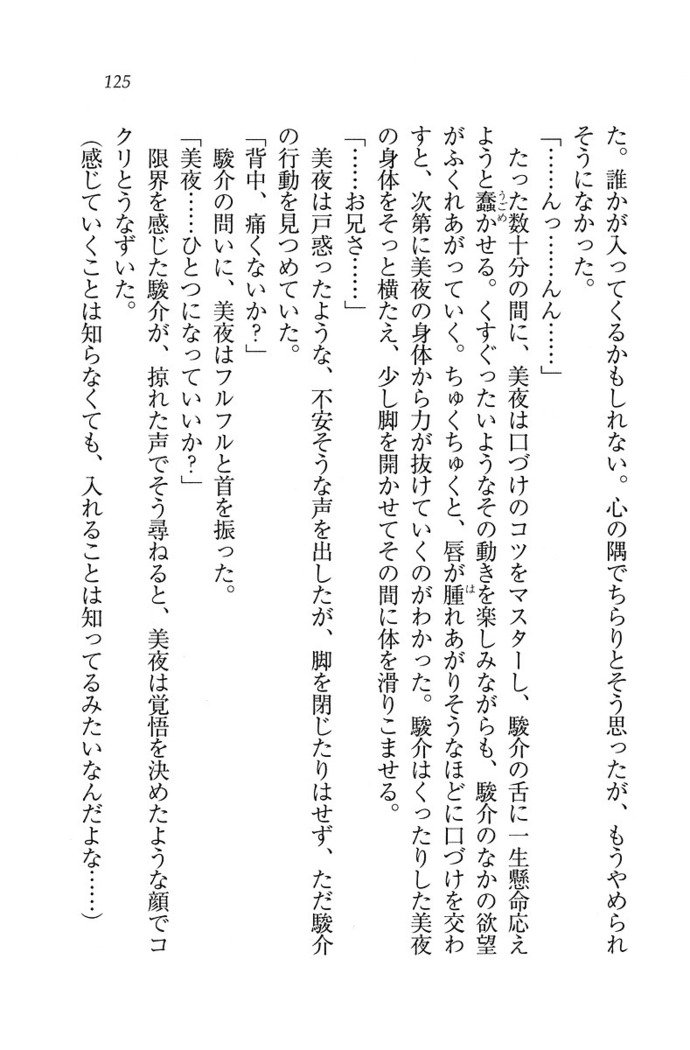 125
た。誰かが入ってくるかもしれない。心の隅でちらりとそう思ったが、もうやめられ
そうになかった。
「……んっ……んん……」
たった数十分の間に、美夜は口づけのコツをマスターし、駿介の舌に一生懸命応え
ようと蠢かせる。くすぐったいようなその動きを楽しみながらも、駿介のなかの欲望
がふくれあがっていく。ちゅくちゅくと、唇が腫れあがりそうなほどに口づけを交わ
すと、次第に美夜の身体から力が抜けていくのがわかった。駿介はくったりした美夜
の身体をそっと横たえ、少し脚を開かせてその間に体を滑りこませる。
「……お兄さ……」
美夜は戸惑ったような、不安そうな声を出したが、脚を閉じたりはせず、ただ駿介
の行動を見つめていた。
「背中、痛くないか？」
駿介の問いに、美夜はフルフルと首を振った。
「美夜……ひとつになっていいか？」
限界を感じた駿介が、掠れた声でそう尋ねると、美夜は覚悟を決めたような顔でコ
クリとうなずいた。
（感じていくことは知らなくても、入れることは知ってるみたいなんだよな……）